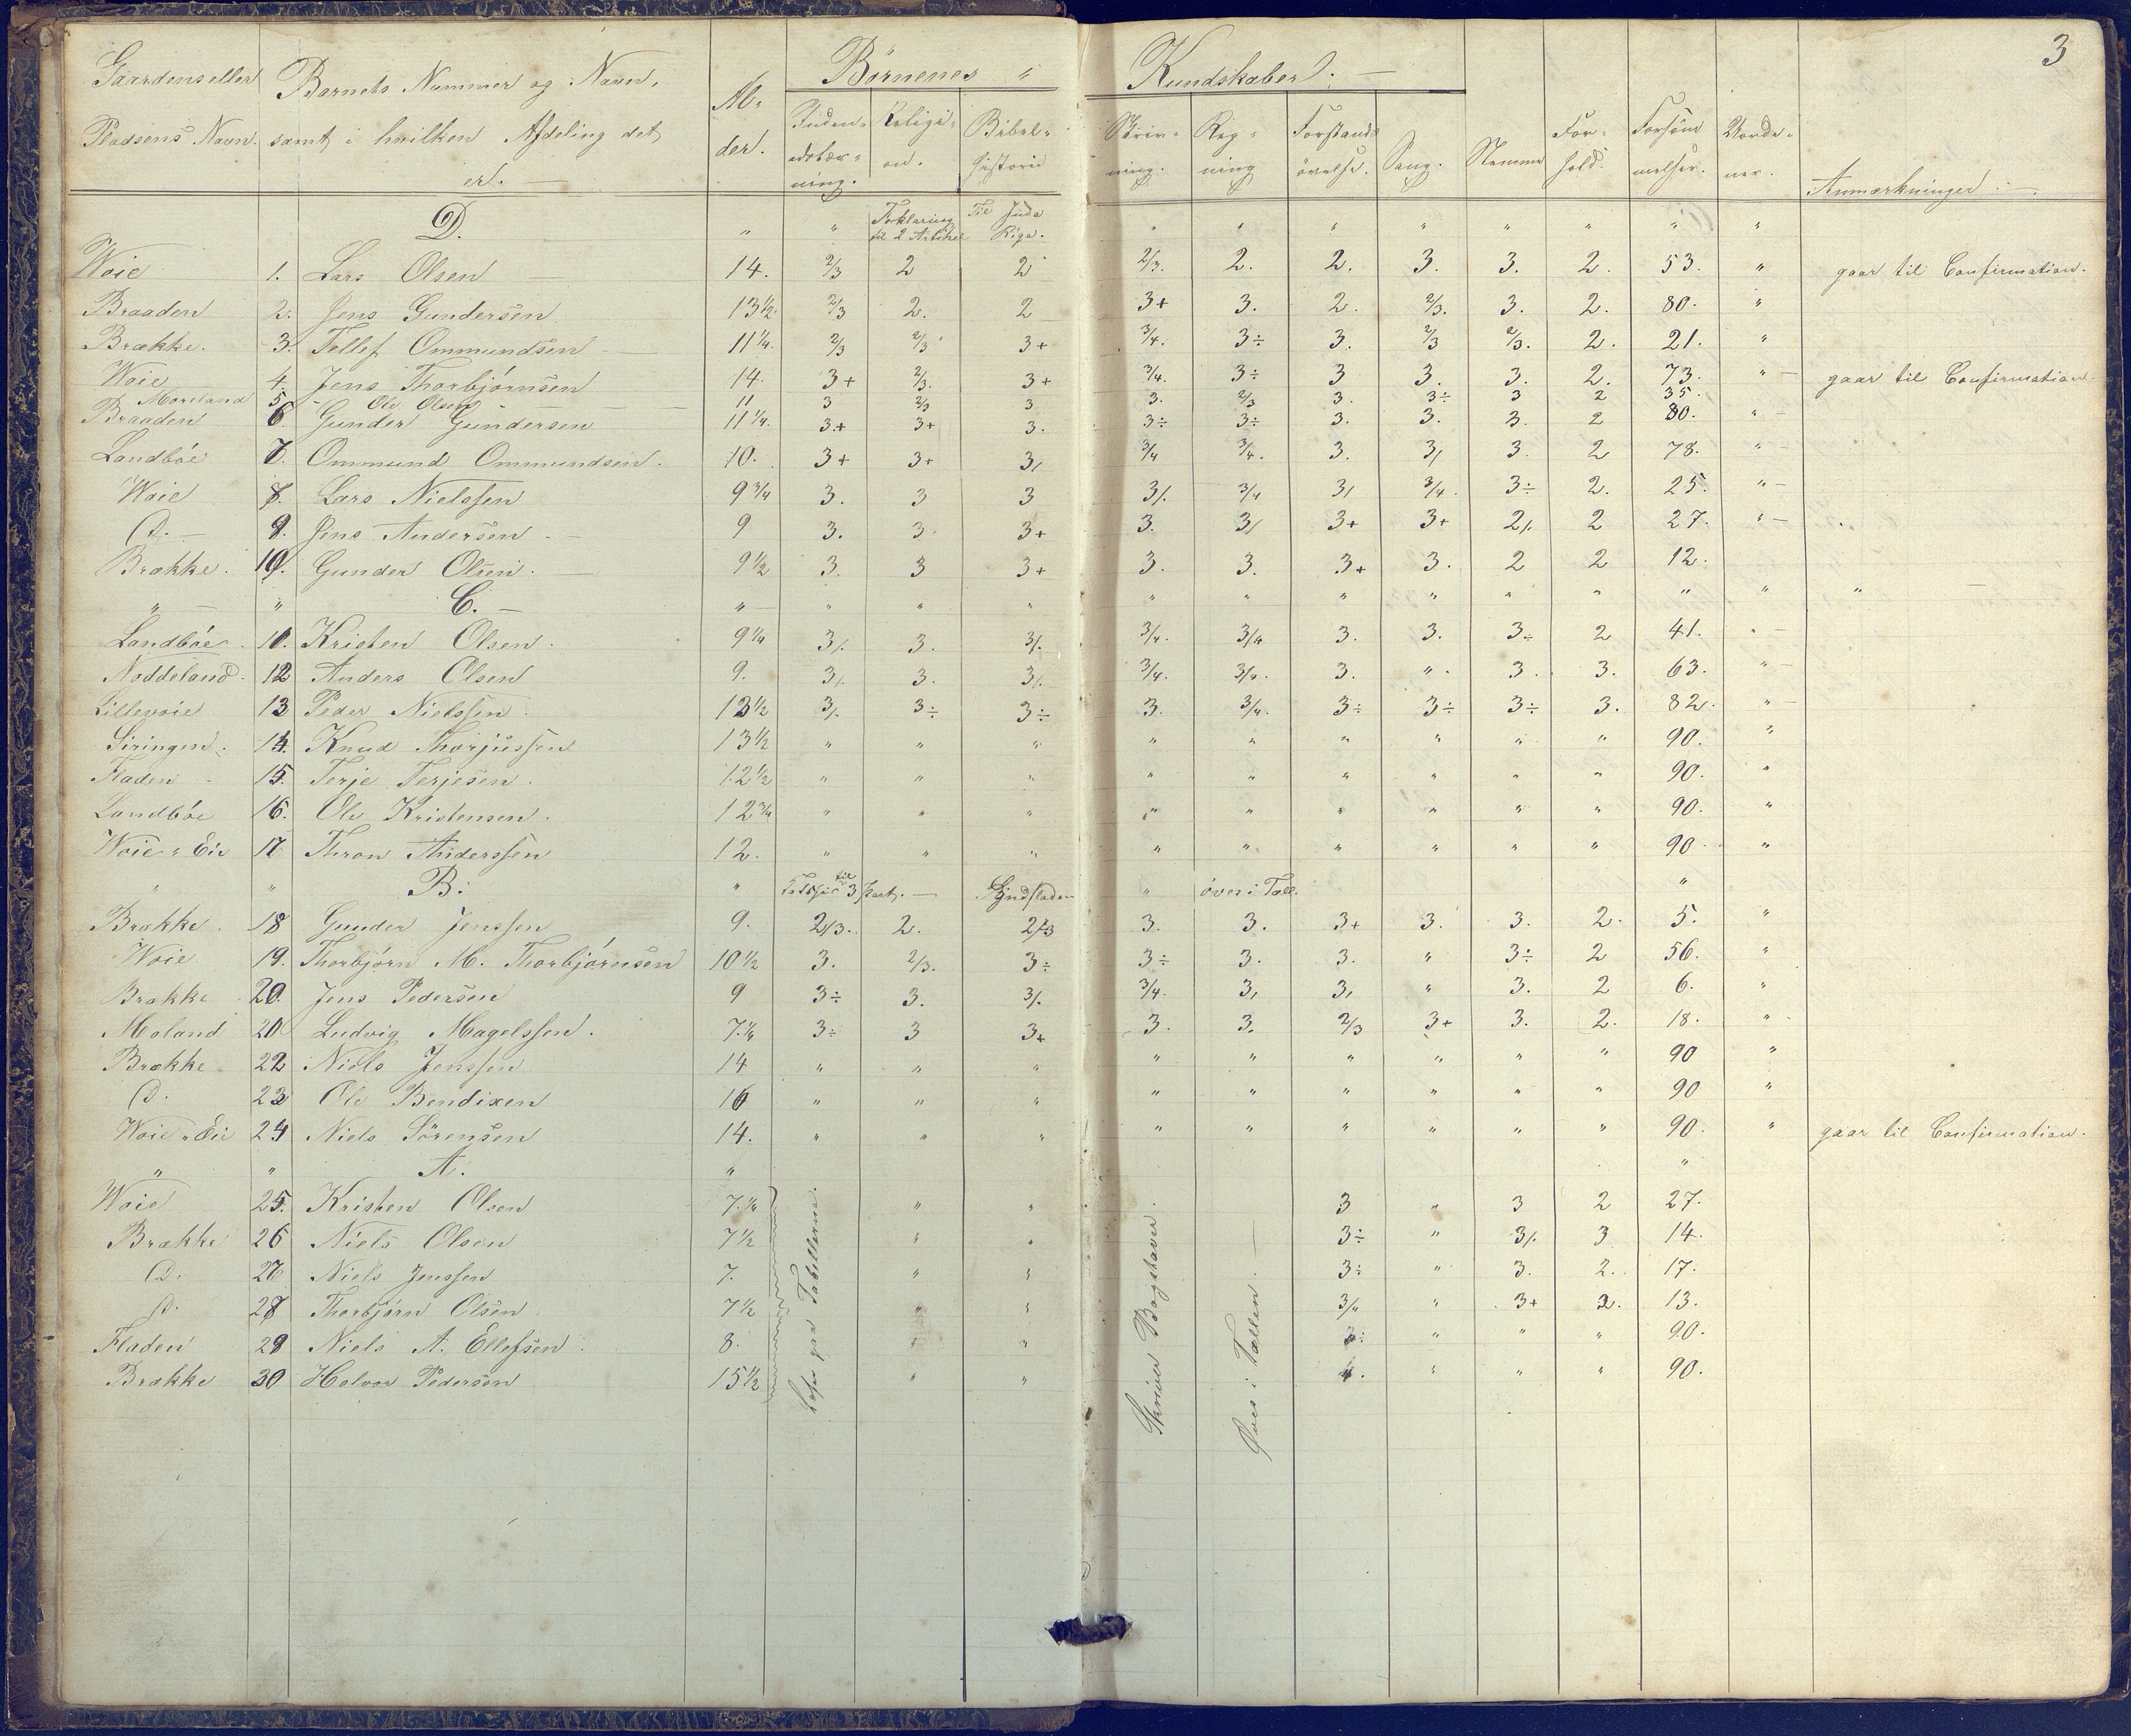 3
Gaardens eller Barnets Nummer og Navn, Al- Börnenes " Kundskaber. —
Pladsens Navn. samt i hvilken Afdeling det der. Religi- Bibel- Skriv- Reg- Forstands Sang. Stemme For- Forsöm Vorde- Anmærkninger. —
er. — ning. on. historie ning. ning övelse. hold. melser. ner.
D. " " Forklaring til 2 Artikel Til Juda Rige. " " " " " " " "
Woie 1. Lars Olsen 14. 2/3 2 2 2/3. 2. 2. 3. 3. 2. 53. " gaar til Confirmation.
Braaden 2. Jens Gundersen 13 1/2 2/3 2. 2 3+ 3. 2. 2/3. 3. 2. 80. "
Brække. 3. Tellef Ommundsen — 11 1/4. 2/3 2/3 3+ 3/4. 3÷ 3. 2/3 2/3. 2. 21. "
Woie 4. Jens Thorbjörnsen 14. 3+ 2/3. 3+ 3/4. 3÷ 3 3. 3. 2. 73. " gaar til Confirmation.
Moreland 5. Ole Olsen — 11 3 2/3 3. 3. 2/3 3. 3÷ 3 2 35.
Braaden 6 Gunder Gundersen 11 1/4. 3+ 3+ 3. 3÷ 3÷ 3. 3. 3. 2 80. "
Landböe 7. Ommund Ommundsen. 10. 3+ 3+ 3/ 3/4 3/4. 3. 3/ 3. 2 78. "
Woie 8. Lars Nielssen 9 3/4 3. 3 3 3/. 3/4 3/ 3/4. 3÷ 2. 25. "
D. — 9. Jens Andersen — 9 3. 3. 3+ 3. 3/ 3+ 3+ 2/. 2 27. "
Brække. 10. Gunder Olsen. — 9 1/2 3. 3 3+ 3. 3. 3+ 3. 2 2 12.
" — " C. — " " " " " " " " " " " " "
Landböe. 11. Kristen Olsen. 9 1/4 3/. 3. 3/. 3/4. 3/4 3. 3. 3÷ 2 41. "
Noddeland. 12 Anders Olsen 9. 3/. 3. 3/. 3/4. 3/4. 3. " 3. 3. 63. "
Lillevoie 13 Peder Nielssen. 13 1/2 3/. 3÷ 3÷ 3. 3/4. 3÷ 3÷ 3÷ 3. 82. "
Siringen. 14. Knud Thorjussen 13 1/2 " " " " " " " " " 90. "
Fladen 15. Terje Terjesen. 12 1/2 " " " " " " " " " 90. "
Landböe 16. Ole Kristensen. 12 3/4 " " " " " " " " " 90. "
Woie " Eie 17 Thron Anderssen 12. " " " " " " " " " 90. "
" " B. " til 3 Part. — Syndfloden " över i Tall. "
Brække. 18 Gunder Jenssen 9. 2/3. 2. 2/3 3. 3. 3+ 3. 3. 2. 5. "
Woie. 19. Thorbjörn M. Thorbjörnsen 10 1/2 3. 2/3. 3÷ 3÷ 3. 3. " 3÷ 2 56. "
Brække 20. Jens Pedersen 9 3÷ 3. 3/. 3/4. 3, 3, " 3. 2 6. "
Moland 20 Ludvig Magelssen. 7 1/4 3÷ 3 3+ 3. 3. 2/3 3+ 3. 2. 18. "
Brække 22 Niels Jenssen 14 " " " " " " " " " 90 "
D. 23 Ole Bendixen 16 " " " " " " " " " 90 "
Woie " Eie 24 Niels Sörensen 14. " " " " " " " " " 90. " gaar til Confirmation.
" " A. " "
Woie 25. Kristen Olsen 7 1/4 " " 3 " 3 2 27.
Brække 26 Niels Olsen 7 1/2 " " 3÷ " 3/. 3 14.
D. 27 Niels Jenssen 7. " " 3÷ " 3. 2. 17.
D. 28 Thorbjörn Olsen 7 1/2 " " 3/4 " 3+ 2. 13.
Fladen 29 Niels A. Ellefsen. 8. " " " " " 90.
Brække 30 Halvor Pedersen 15 1/2 " " " " " 90.
læse paa Tabellerne.
Skriver Bogstaver.
Öves i Tallen. —